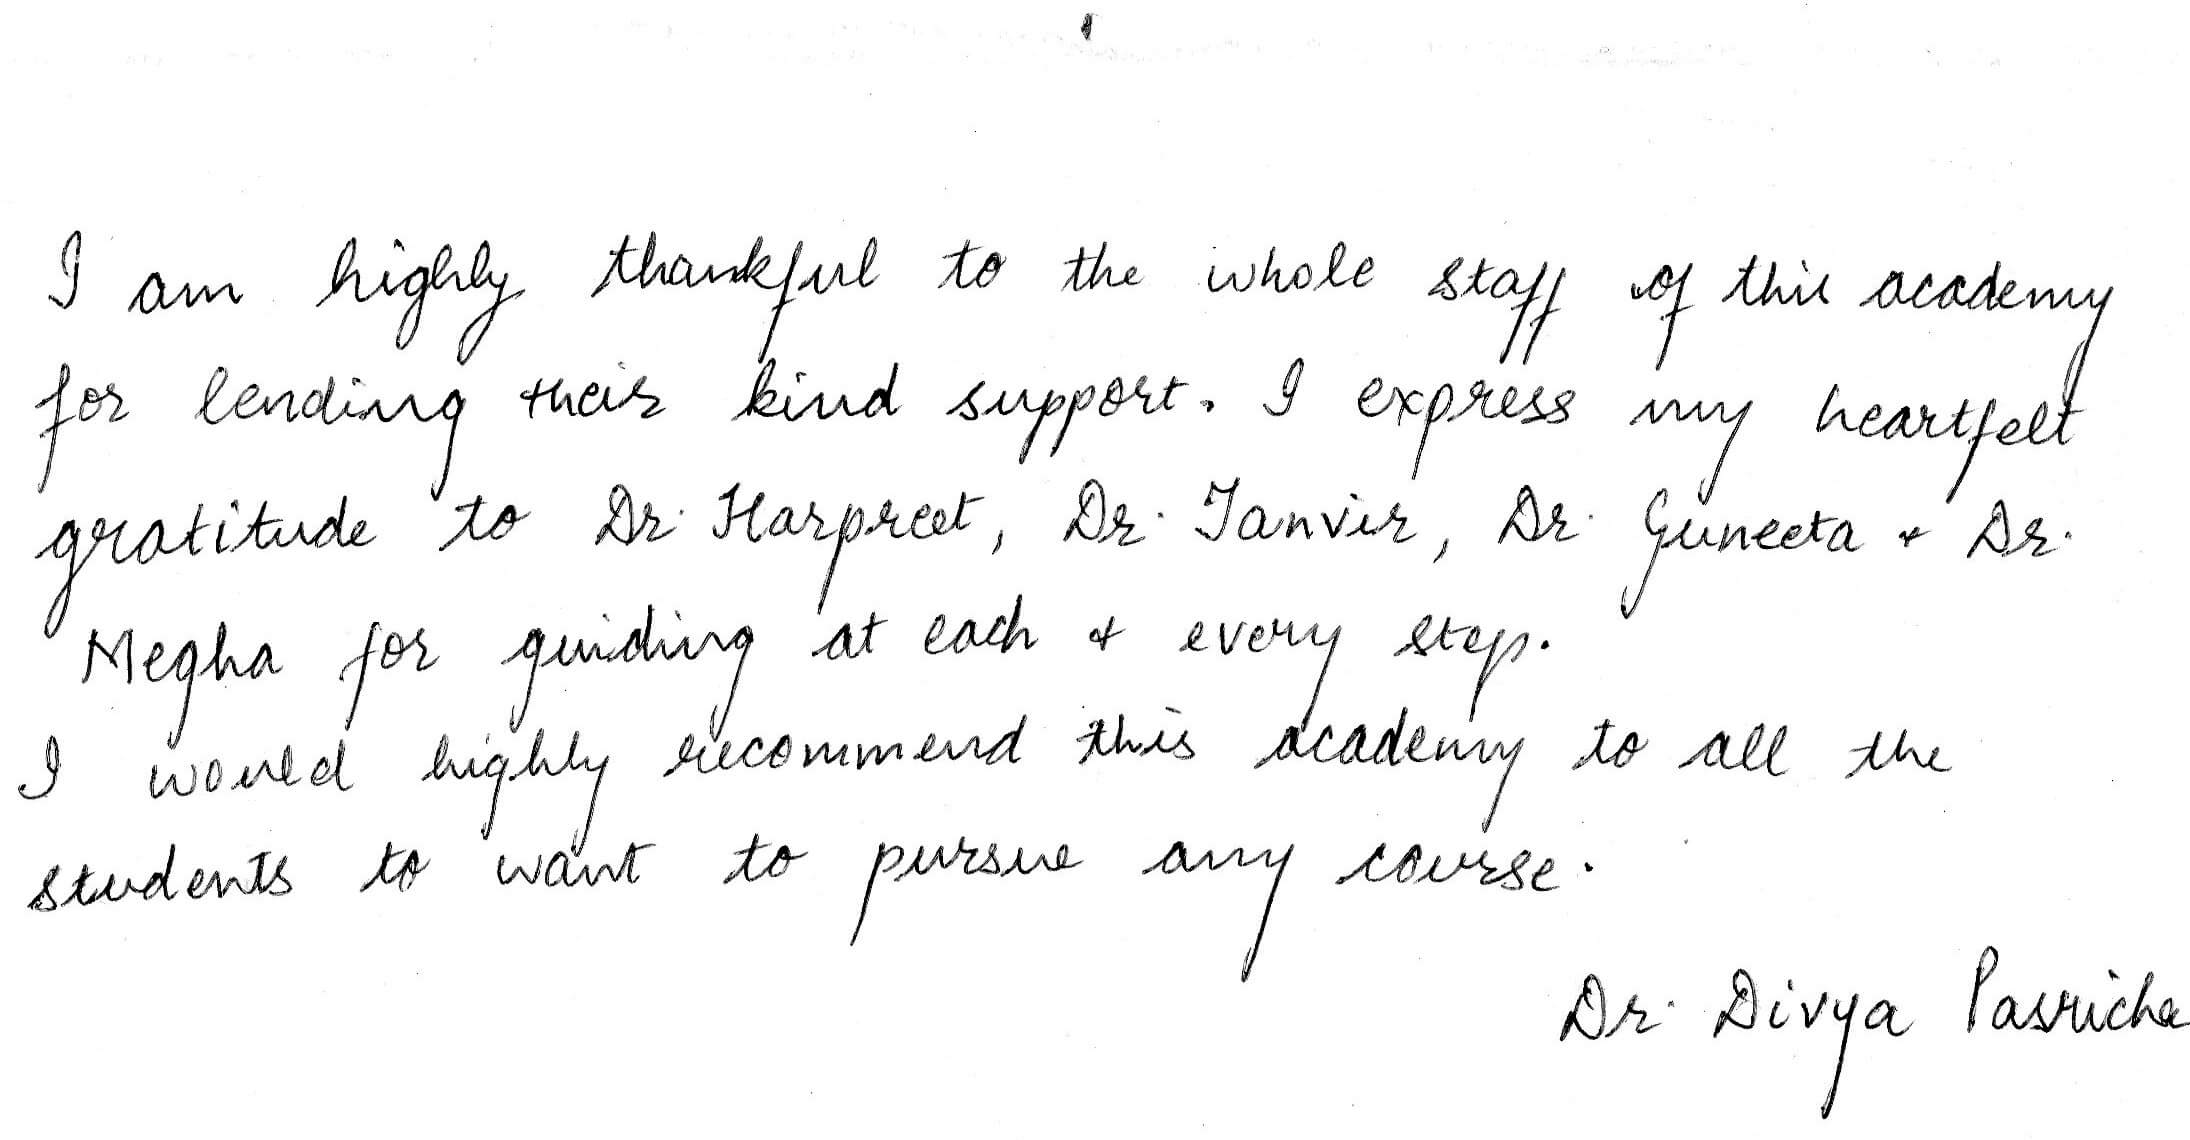 I am highly thankful to the whole staff of this academy
for lending their kind support. I express my heartfelt
gratitude to Dr. Harpreet, Dr. Tanvir, Dr. Guneeta & Dr.
Megha for guiding at each & every step.
I would highly recommend this academy to all the
students to want to pursue any course.
Dr. Divya Pasricha